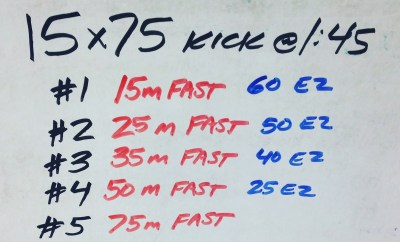 15x75 KICK @1:45
#1 15m FAST 60 EZ
#2 25 m FAST 50 EZ
#3 35m FAST 40 EZ
#4 50 m FAST 25 EZ
#5 75m FAST